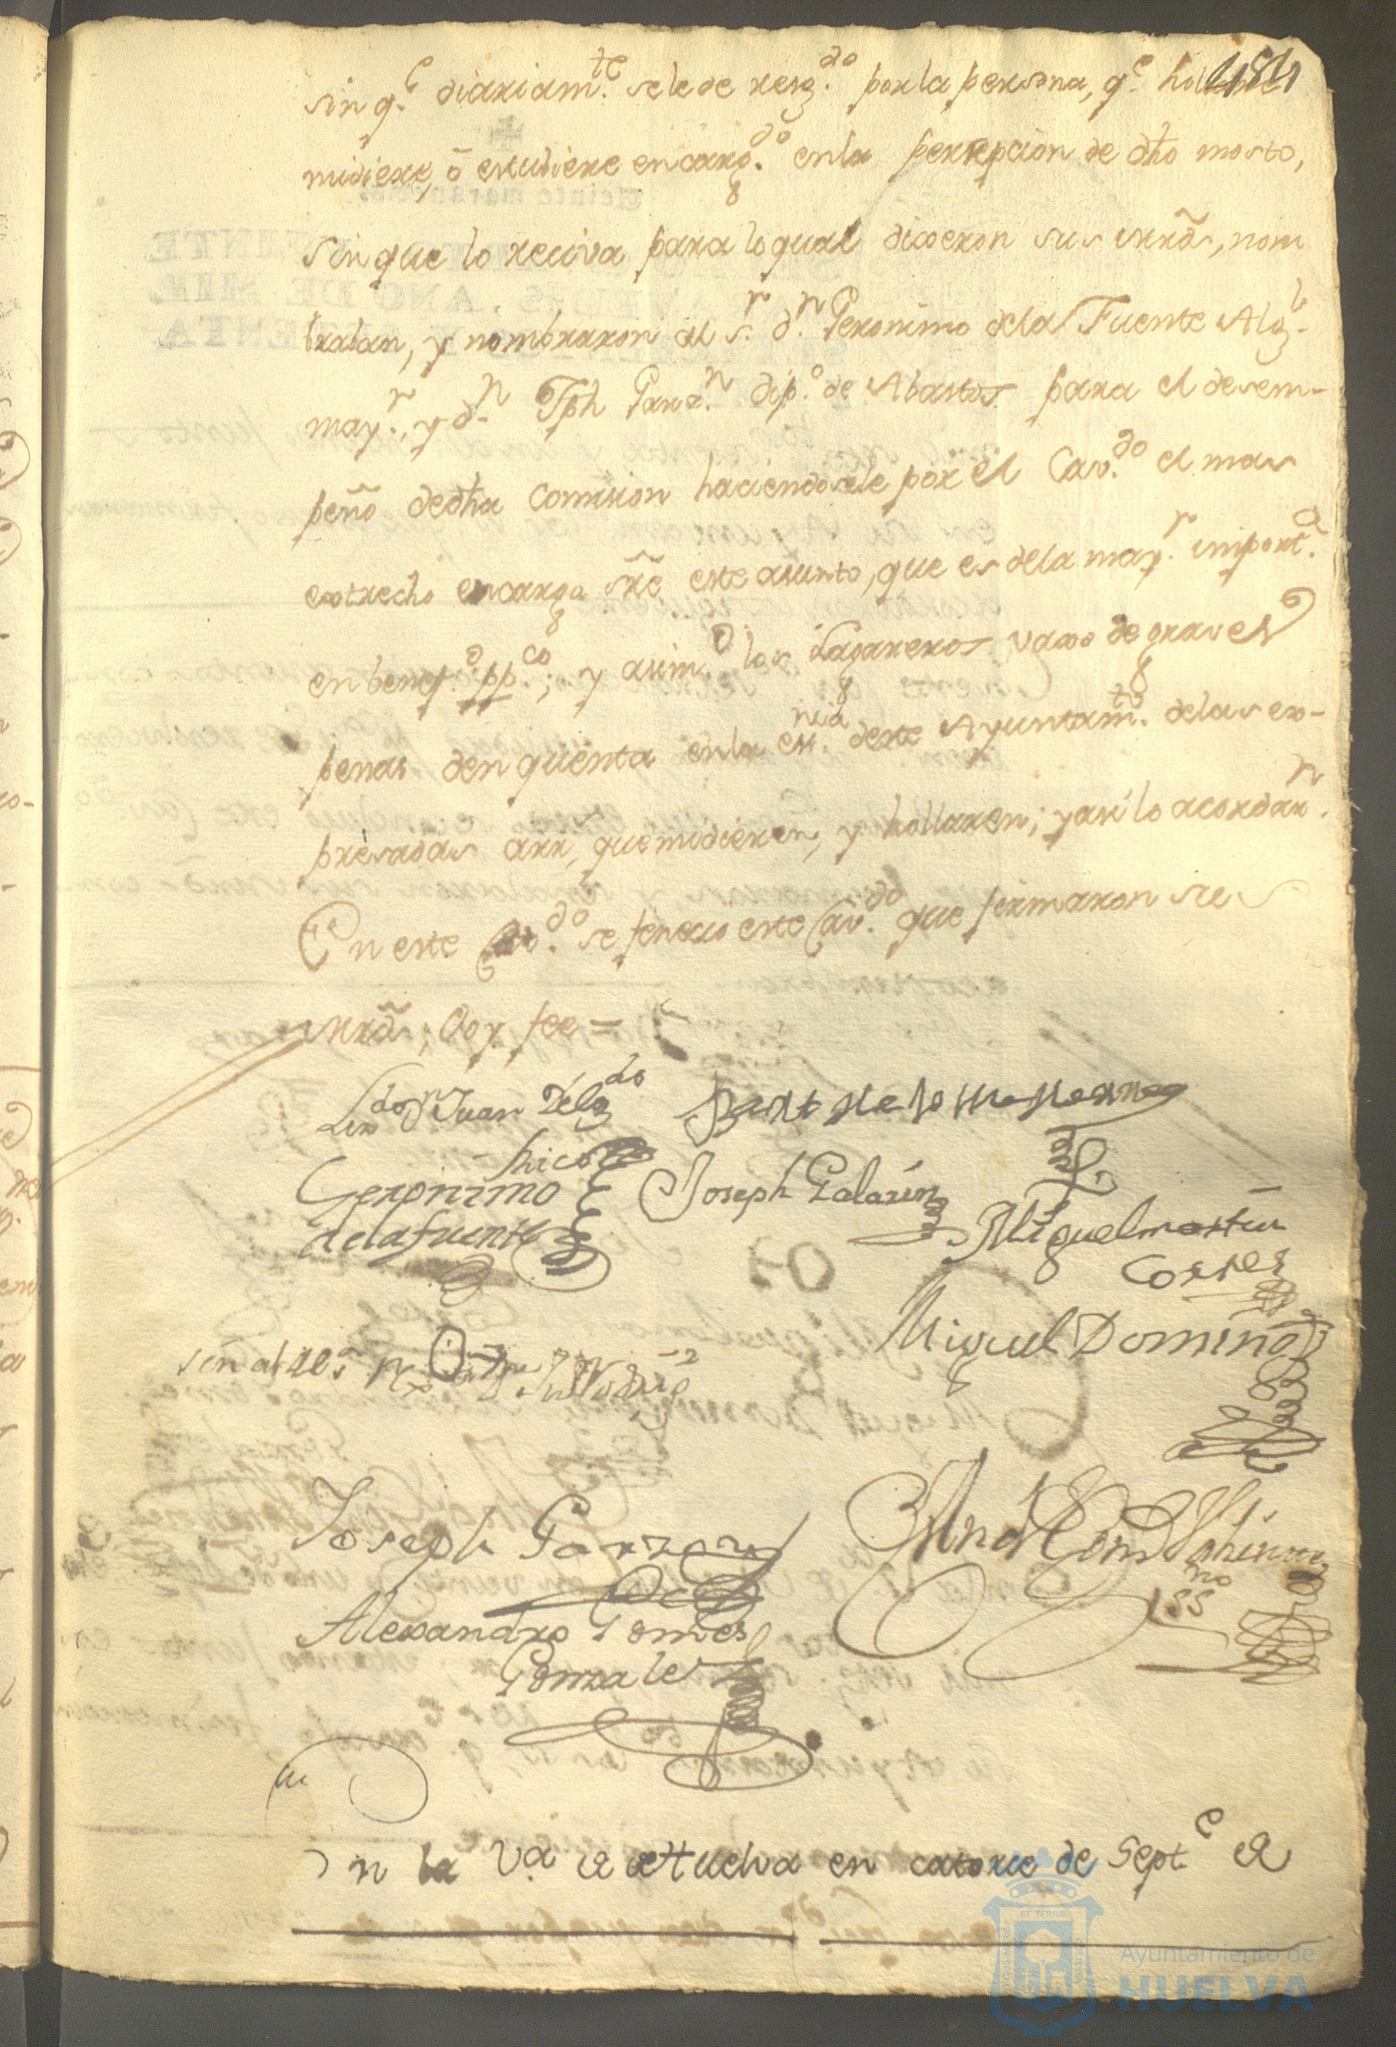 484
sin q.e diariam.te se le de resg.do por la persona, q.e hollare
midiere, ô estubiere encarg.do en la persepcion de dho mosto,
sin que lo reciva para lo qual dixeron sus mrds, nom
braban, y nombraron al s.r d.n Geronimo de la Fuente Alg.l
may.r, y d.n Jph Garz.n dip.o de Abastos para el desem-
peño de dha comision haciendosele por el Cav.do el mas
extrecho encargo sre este asunto, que es de la may.r import.a
en benef.o pp.co; y asim.o los Lagareros vaxo de graves
penas den quenta en la es.nia deste Ayuntam.to de las ex-
presadas arr.s, que midieren, y hollaren; y asi lo acordar.n
En este Cav.do se fenecio este Cav.do que firmaron sus
mrds, Doy fee =
Lizdo Dn Juan Delgdo
chico
Geronimo
de la fuente
Joseph Galarin
Miguel martin
Cortes
Miguel Doming
señal del s.r
Joseph Garzon
Alexandro Gomes
Gonzales
ss.no
En la V.a de Huelva en catorce de Sept.e de
ET TERRÆ
Ayuntamiento de
HUELVA